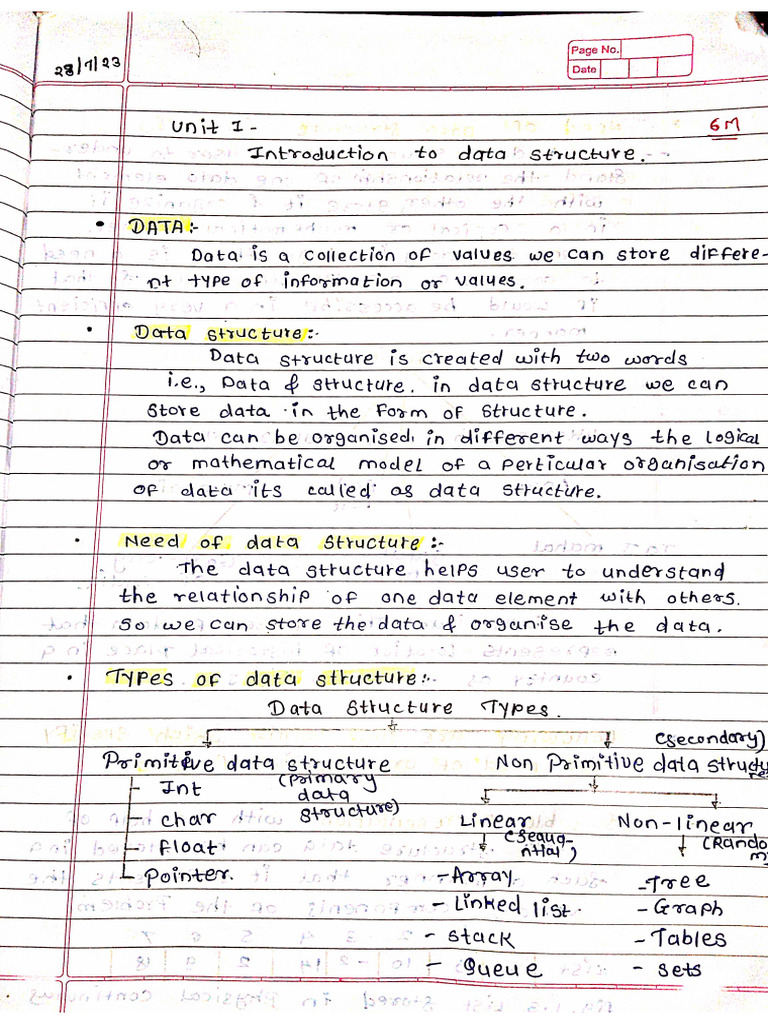 28/7/23
Page No.
Date
Unit I -
6M
Introduction to data structure.
• DATA:-
Data is a collection of values we can store differe-
nt type of information or values.
• Data structure:-
Data structure is created with two words
i.e., Data & structure. in data structure we can
store data in the form of structure.
Data can be organised in different ways the logical
or mathematical model of a perticular organisation
of data its called as data structure.
• Need of data structure:-
The data structure helps user to understand
the relationship of one data element with others.
so we can store the data & organise the data.
• Types of data structure:-
Data structure Types.
(secondary)
Primitive data structure
Non Primitive data structure
(primary
data
structure)
- Int
- char
- float
- pointer.
Linear
(Sequ-
ntial)
Non-linear
(Rando
m)
- Array
- Linked list.
- stack
- Queue
- Tree
- Graph
- Tables
- sets